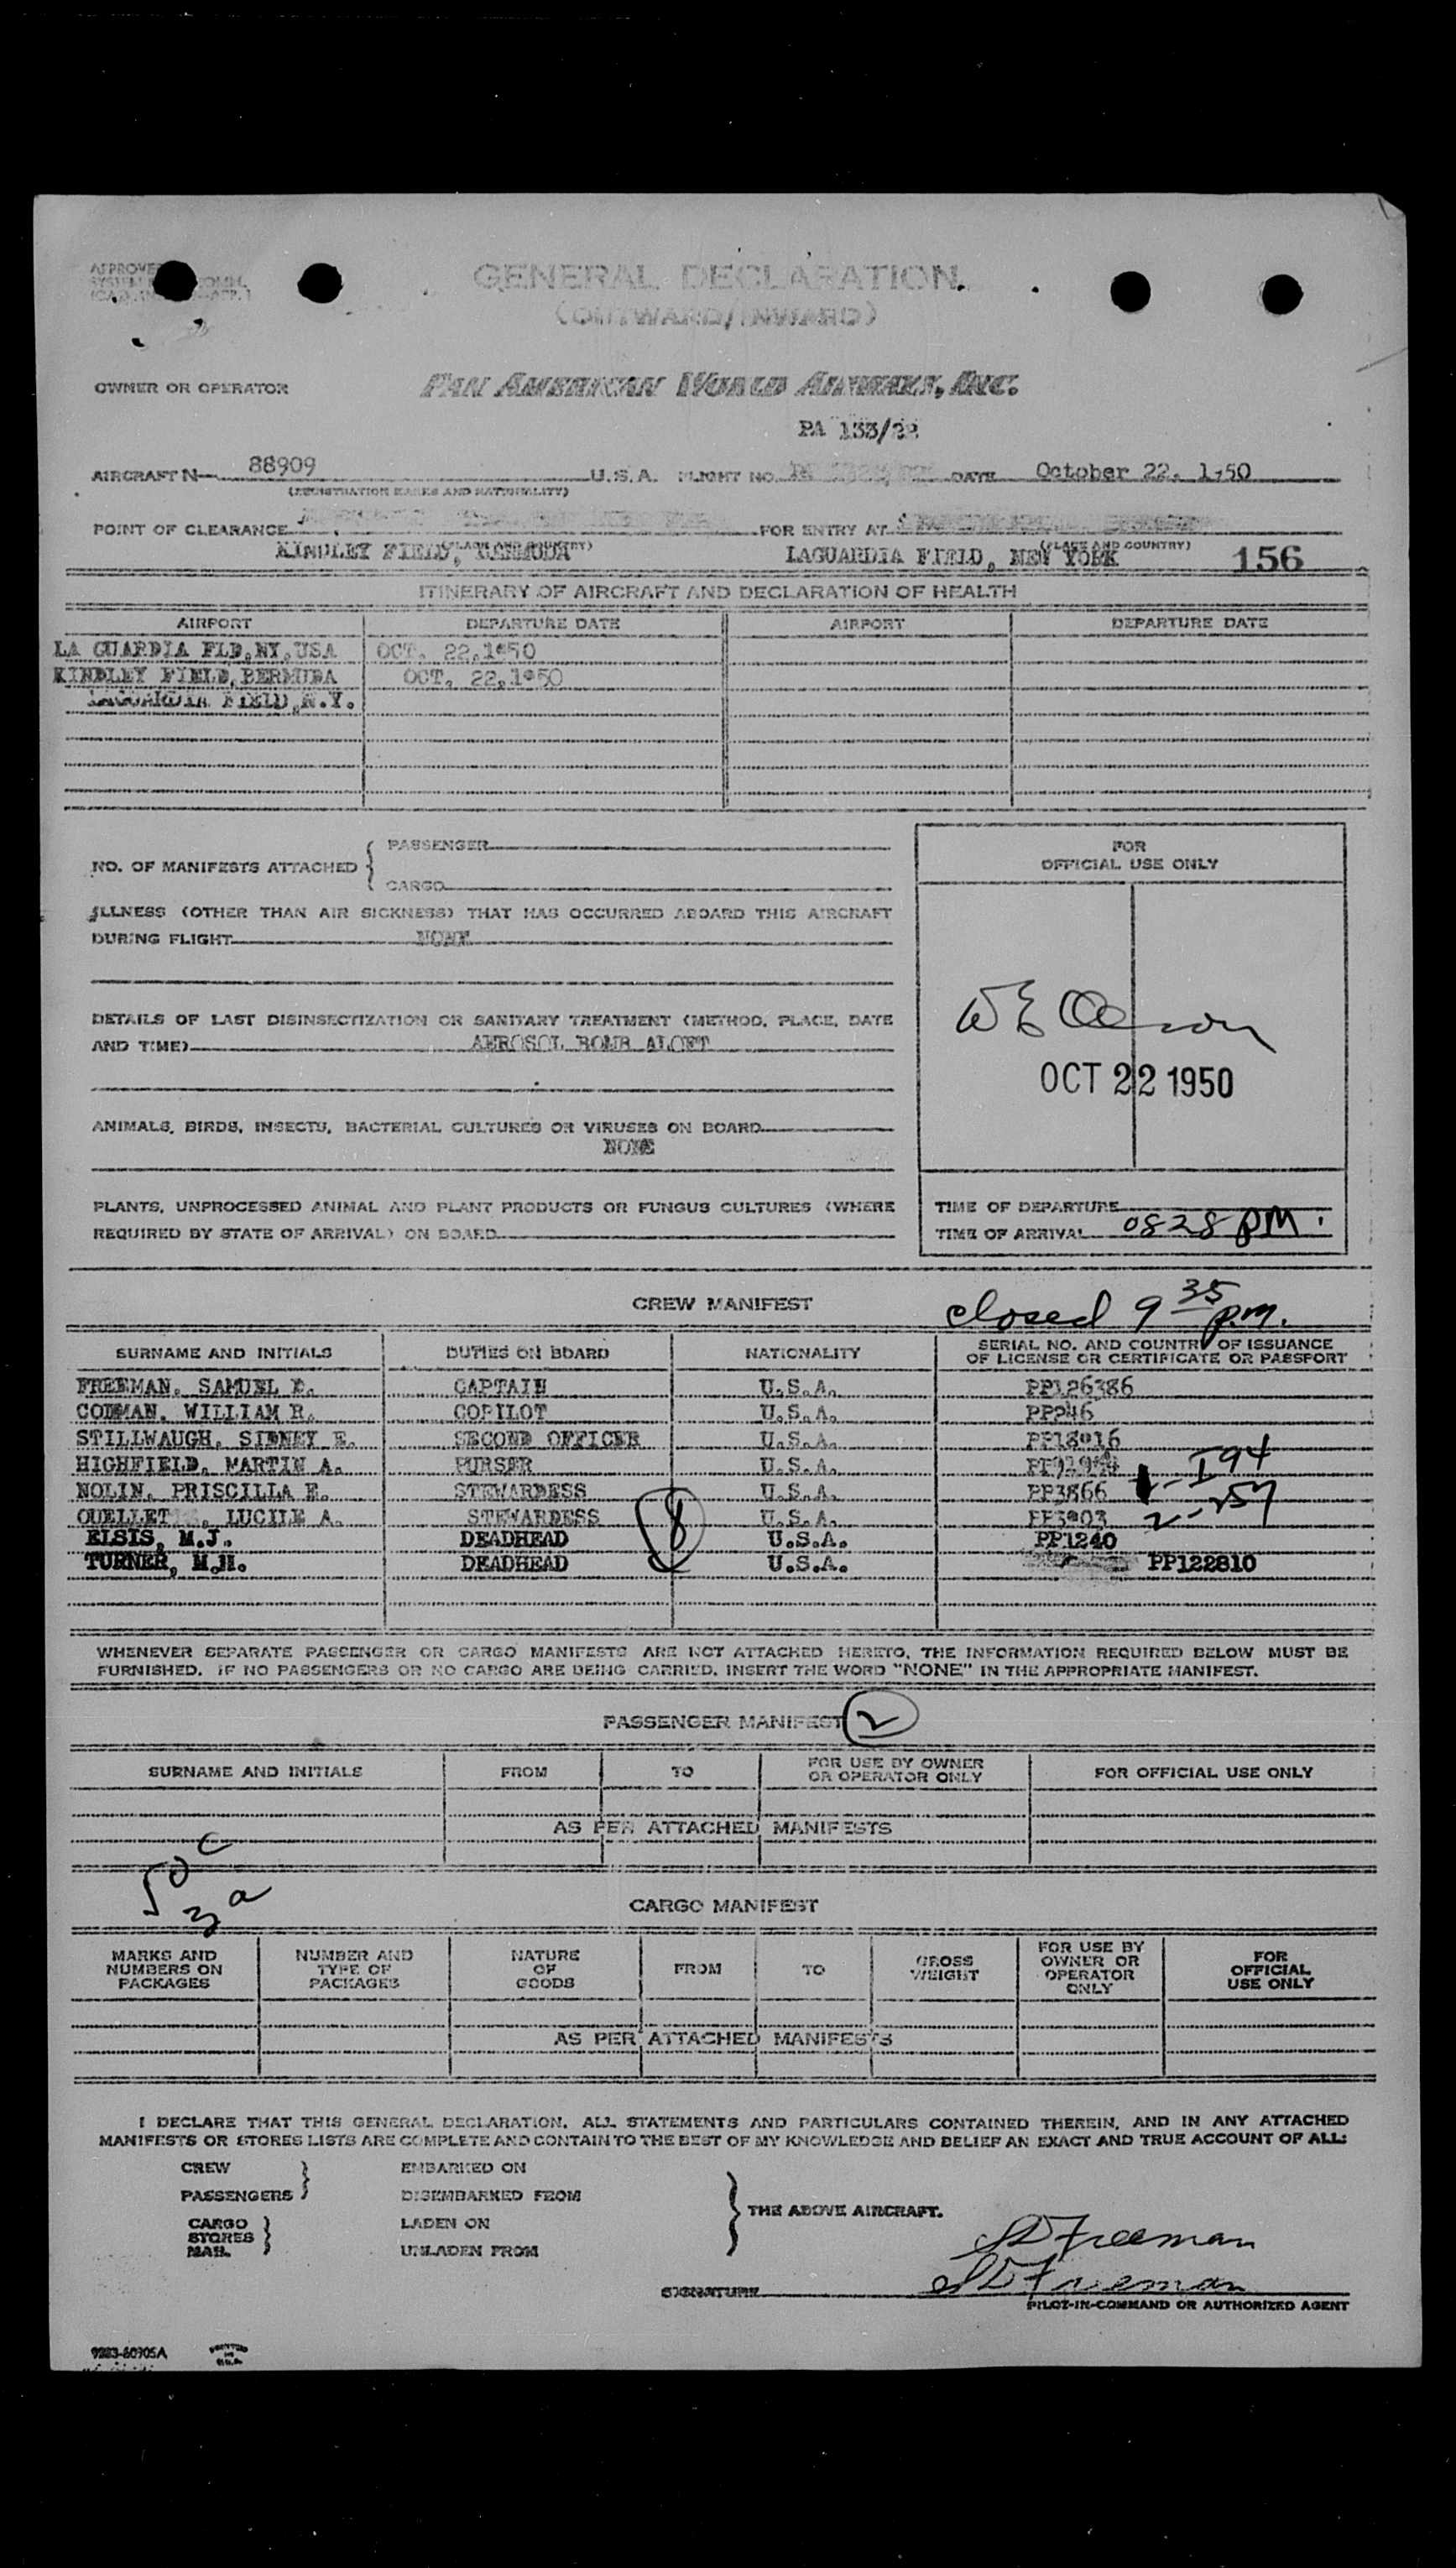 GENERAL DECLARATION
(OUTWARD/INWARD)
OWNER OR OPERATOR PAN AMERICAN WORLD AIRWAYS, INC.
PA 133/22
AIRCRAFT N— 88909 U.S.A. FLIGHT NO. DATE October 22, 1950
(REGISTRATION MARKS AND NATIONALITY)
POINT OF CLEARANCE FOR ENTRY AT
KINDLEY FIELD, BERMUDA LAGUARDIA FIELD, NEW YORK (PLACE AND COUNTRY) 156
ITINERARY OF AIRCRAFT AND DECLARATION OF HEALTH
AIRPORT DEPARTURE DATE AIRPORT DEPARTURE DATE
LA GUARDIA FLD,NY,USA OCT. 22,1950
KINDLEY FIELD,BERMUDA OCT. 22,1950
LAGUARDIA FIELD,N.Y.
NO. OF MANIFESTS ATTACHED { PASSENGER
CARGO
FOR
OFFICIAL USE ONLY
ILLNESS (OTHER THAN AIR SICKNESS) THAT HAS OCCURRED ABOARD THIS AIRCRAFT
DURING FLIGHT NONE
DETAILS OF LAST DISINSECTIZATION OR SANITARY TREATMENT (METHOD, PLACE, DATE
AND TIME) AEROSOL BOMB ALOFT
OCT 22 1950
ANIMALS, BIRDS, INSECTS, BACTERIAL CULTURES OR VIRUSES ON BOARD
NONE
PLANTS, UNPROCESSED ANIMAL AND PLANT PRODUCTS OR FUNGUS CULTURES (WHERE
REQUIRED BY STATE OF ARRIVAL) ON BOARD
TIME OF DEPARTURE
TIME OF ARRIVAL 0828 PM.
CREW MANIFEST closed 9 35 p.m.
SURNAME AND INITIALS DUTIES ON BOARD NATIONALITY SERIAL NO. AND COUNTRY OF ISSUANCE
OF LICENSE OR CERTIFICATE OR PASSPORT
FREEMAN, SAMUEL D. CAPTAIN U.S.A. PP126386
CODMAN, WILLIAM R. COPILOT U.S.A. PP946
STILLWAUGH, SIDNEY E. SECOND OFFICER U.S.A. PP18916
HIGHFIELD, MARTIN A. PURSER U.S.A. 1-I94
NOLIN, PRISCILLA E. STEWARDESS U.S.A. PP3866
OUELLET, LUCILE A. STEWARDESS U.S.A. PP3903 2-257
ELSIS, M.J. DEADHEAD U.S.A. PP1240
TURNER, M.H. DEADHEAD U.S.A. PP122810
8
WHENEVER SEPARATE PASSENGER OR CARGO MANIFESTS ARE NOT ATTACHED HERETO, THE INFORMATION REQUIRED BELOW MUST BE
FURNISHED. IF NO PASSENGERS OR NO CARGO ARE BEING CARRIED, INSERT THE WORD "NONE" IN THE APPROPRIATE MANIFEST.
PASSENGER MANIFEST 2
SURNAME AND INITIALS FROM TO FOR USE BY OWNER
OR OPERATOR ONLY FOR OFFICIAL USE ONLY
AS PER ATTACHED MANIFESTS
50 c
3 a
CARGO MANIFEST
MARKS AND
NUMBERS ON
PACKAGES NUMBER AND
TYPE OF
PACKAGES NATURE
OF
GOODS FROM TO GROSS
WEIGHT FOR USE BY
OWNER OR
OPERATOR
ONLY FOR
OFFICIAL
USE ONLY
AS PER ATTACHED MANIFESTS
I DECLARE THAT THIS GENERAL DECLARATION, ALL STATEMENTS AND PARTICULARS CONTAINED THEREIN, AND IN ANY ATTACHED
MANIFESTS OR STORES LISTS ARE COMPLETE AND CONTAIN TO THE BEST OF MY KNOWLEDGE AND BELIEF AN EXACT AND TRUE ACCOUNT OF ALL:
CREW } EMBARKED ON
PASSENGERS DISEMBARKED FROM
} THE ABOVE AIRCRAFT.
CARGO } LADEN ON
STORES
MAIL UNLADEN FROM
SD Freeman
SIGNATURE SD Freeman
PILOT-IN-COMMAND OR AUTHORIZED AGENT
9283-60705A PRINTED IN U.S.A.